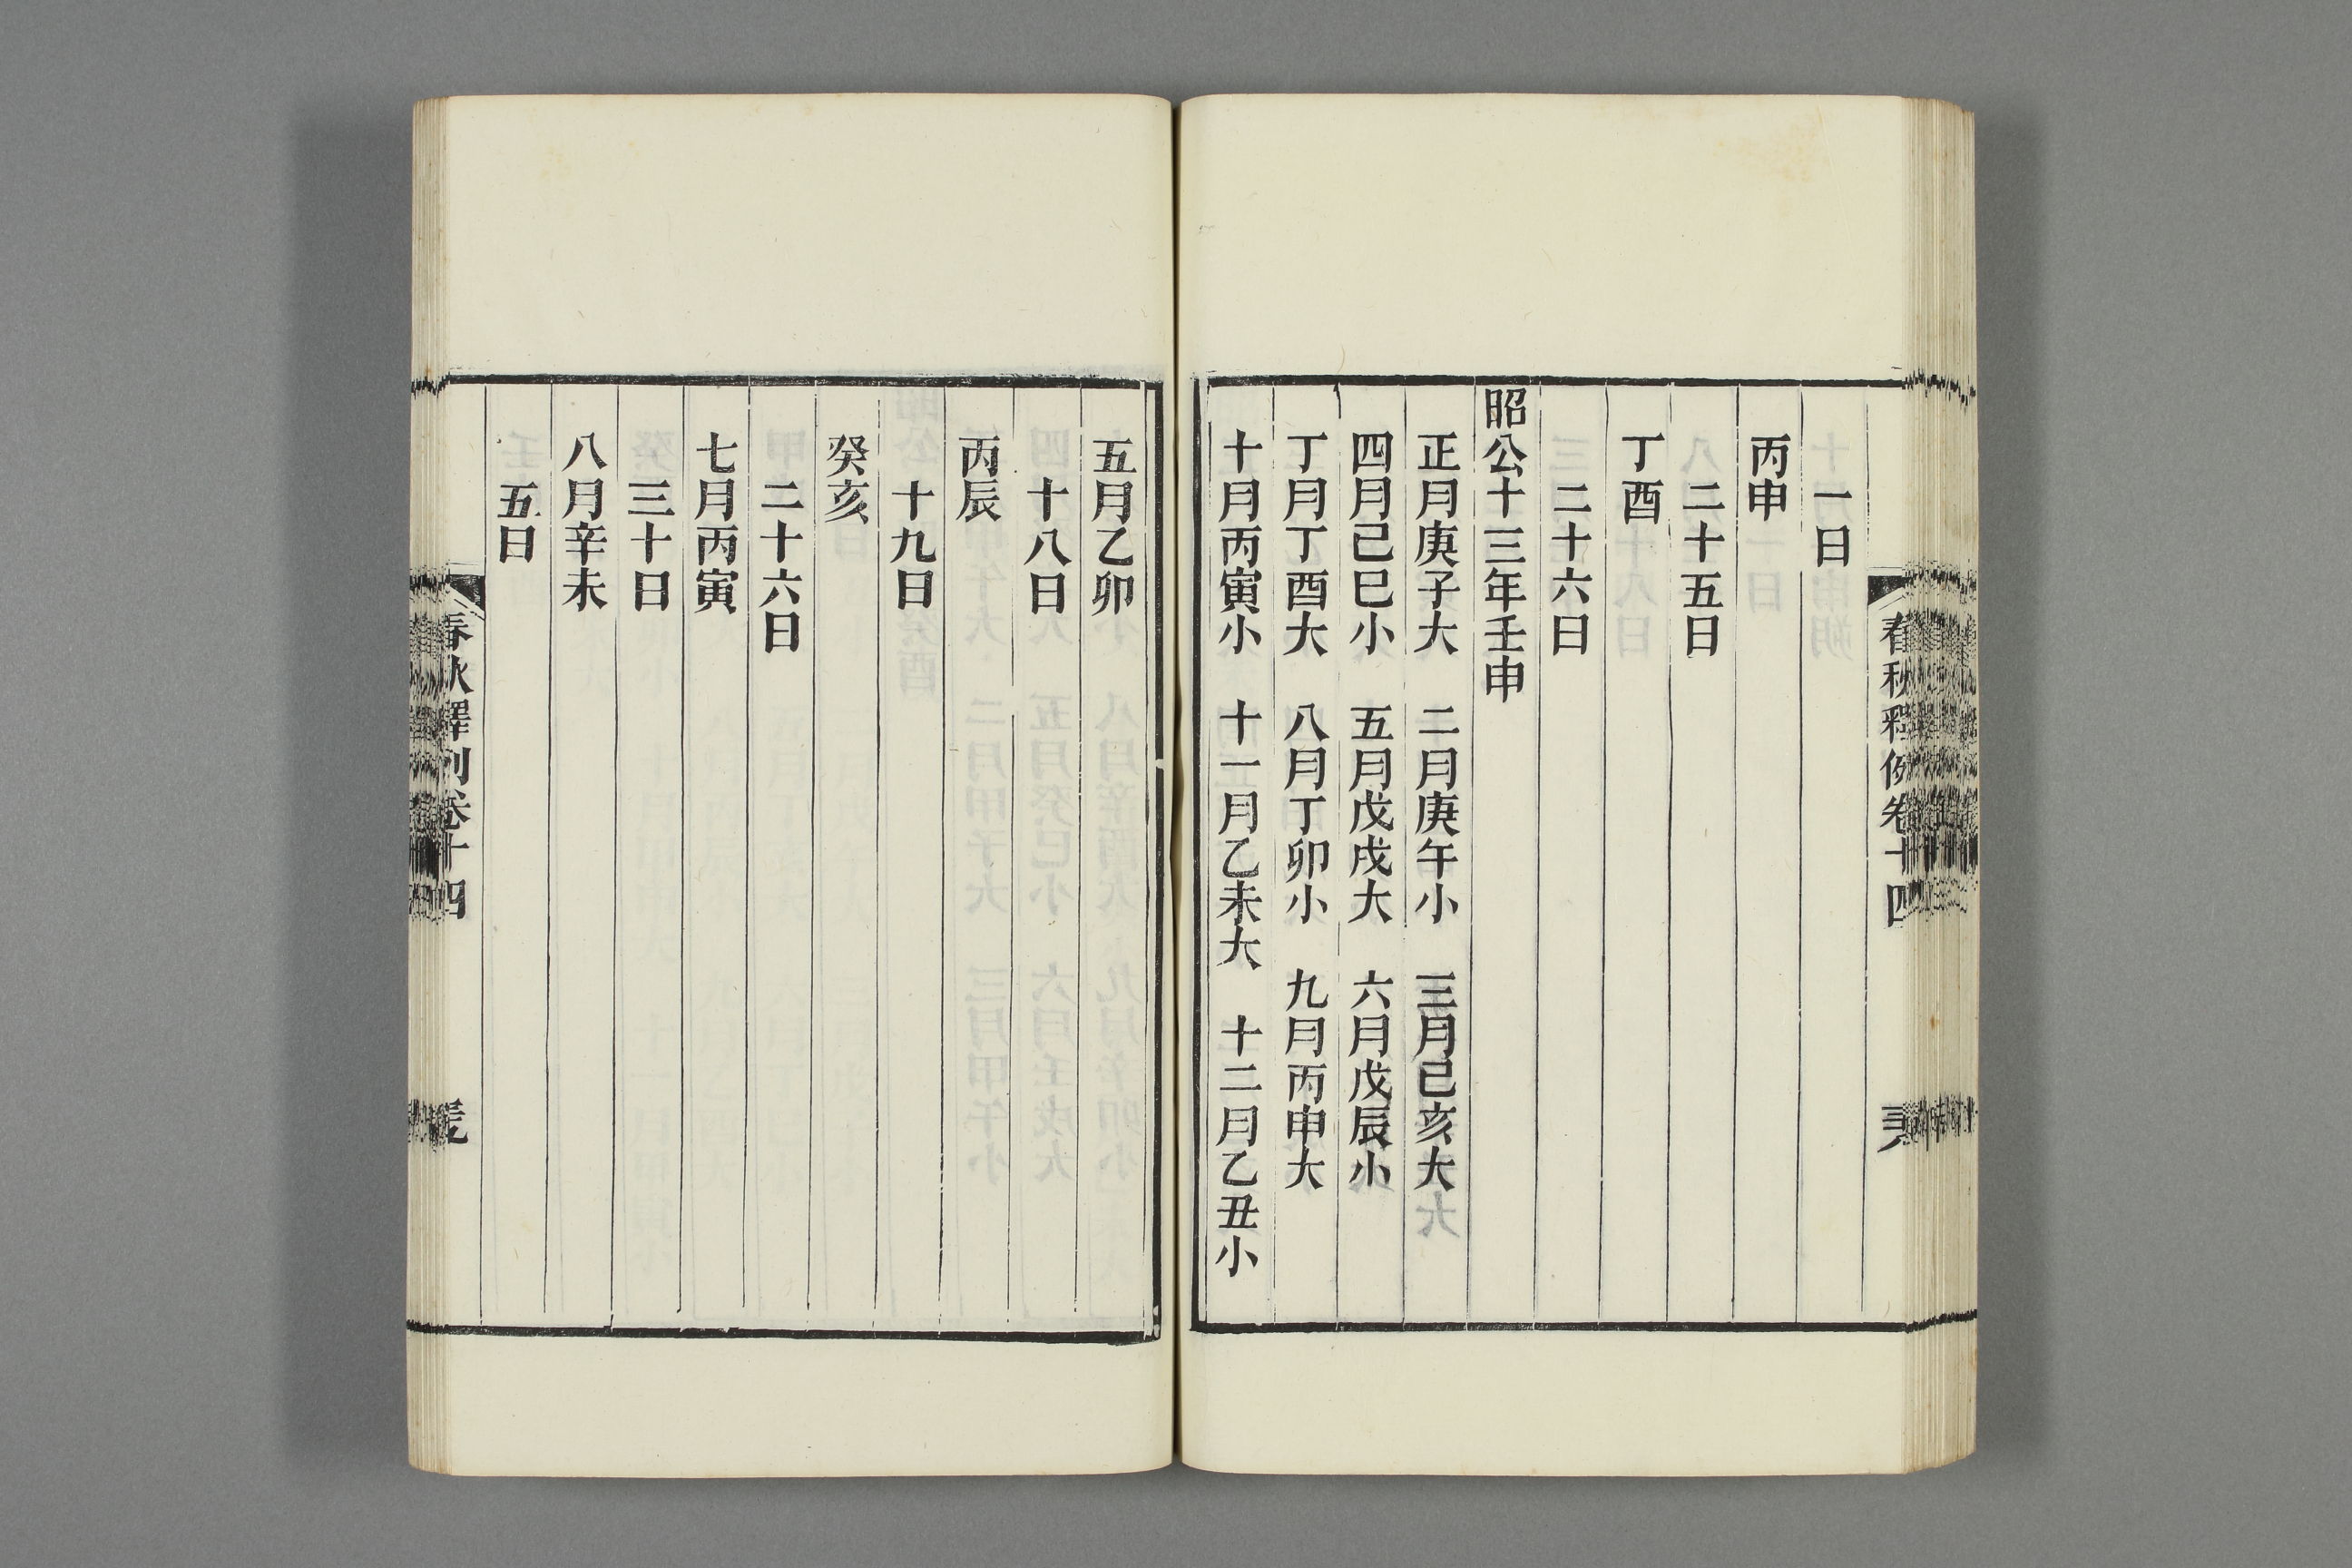 一日
丙申
二十五日
丁酉
二十六日
昭公十三年壬申
正月庚子大　二月庚午小　三月己亥大
四月己巳小　五月戊戌大　六月戊辰小
丁月丁酉大　八月丁卯小　九月丙申大
十月丙寅小　十一月乙未大　十二月乙丑小
五月乙卯
十八日
丙辰
十九日
癸亥
二十六日
七月丙寅
三十日
八月辛未
五日
春秋釋例卷十四